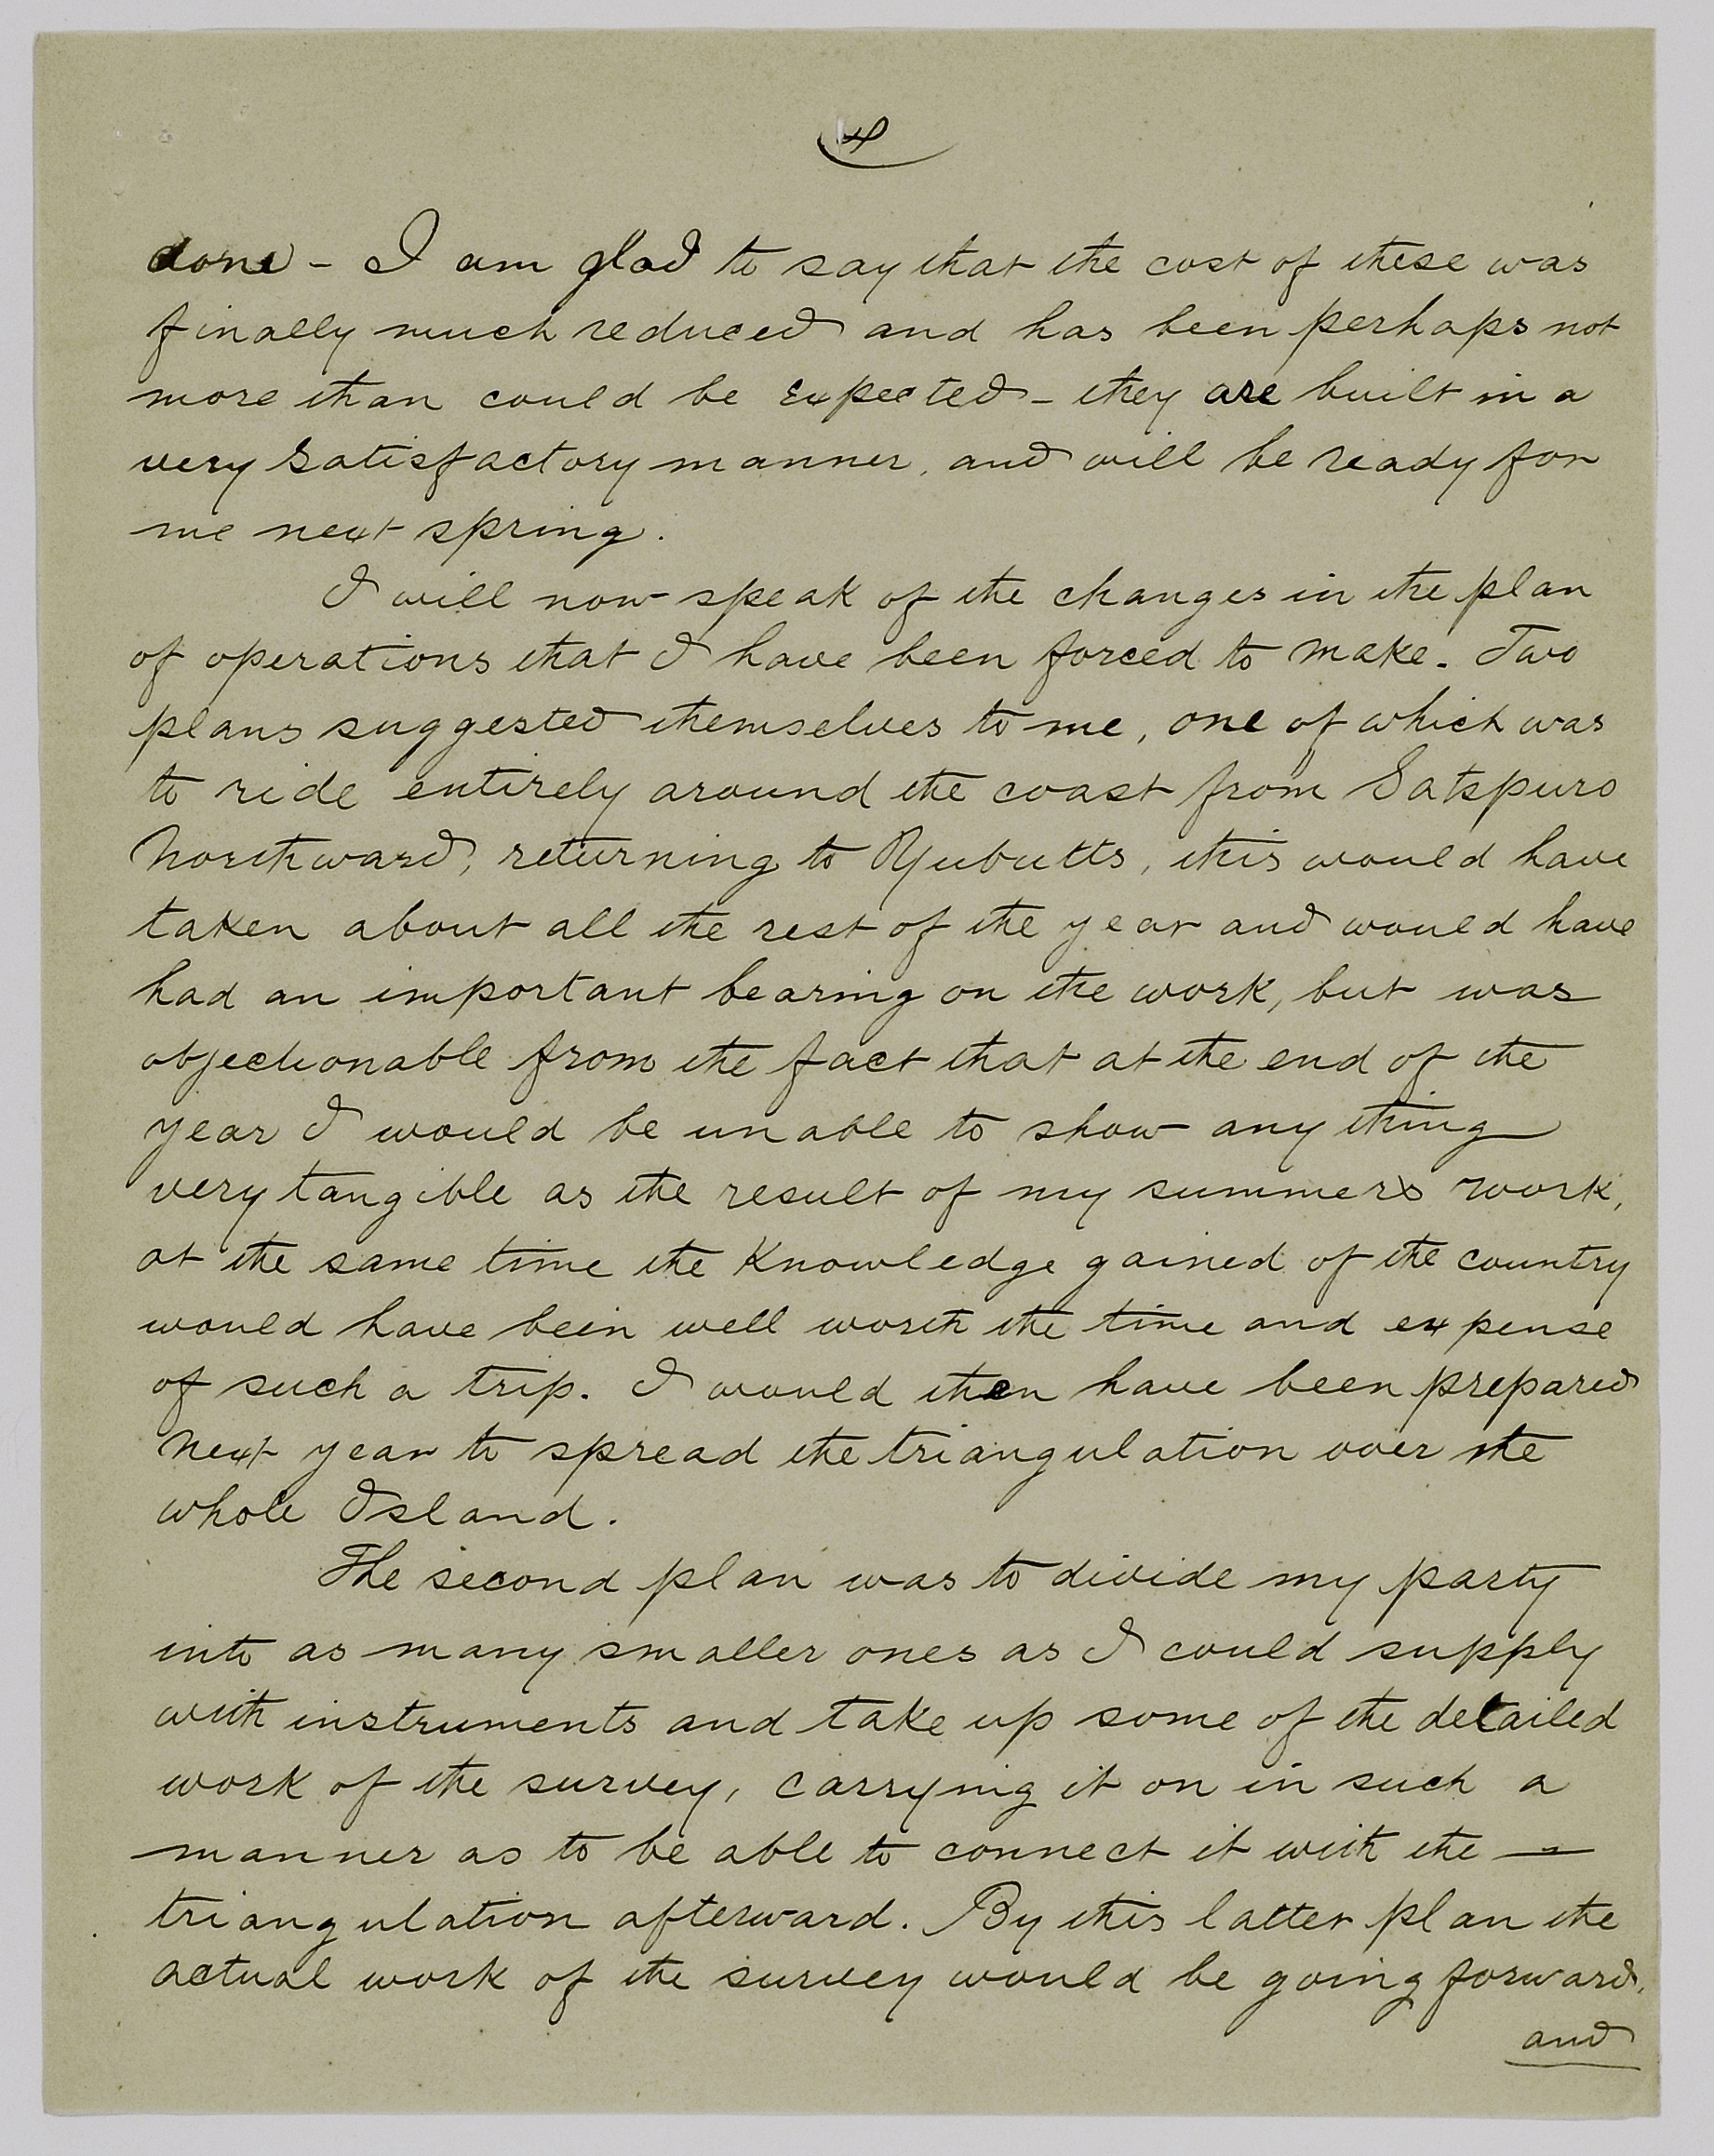 4
done - I am glad to say that the cost of these was
finally much reduced and has been perhaps not
more than could be expected - they are built in a
very satisfactory manner, and will be ready for
me next spring.
I will now speak of the changes in the plan
of operations that I have been forced to make. Two
plans suggested themselves to me, one of which was
to ride entirely around the coast from Satspuro
Northward, returning to Yubutts, this would have
taken about all the rest of the year and would have
had an important bearing on the work, but was
objectionable from the fact that at the end of the
year I would be unable to show any thing
very tangible as the result of my summers work,
at the same time the Knowledge gained of the country
would have been well worth the time and expense
of such a trip. I would then have been prepared
next year to spread the triangulation over the
whole Island.
The second plan was to divide my party
into as many smaller ones as I could supply
with instruments and take up some of the detailed
work of the survey, carrying it on in such a
manner as to be able to connect it with the —
triangulation afterward. By this latter plan the
actual work of the survey would be going forward,
and